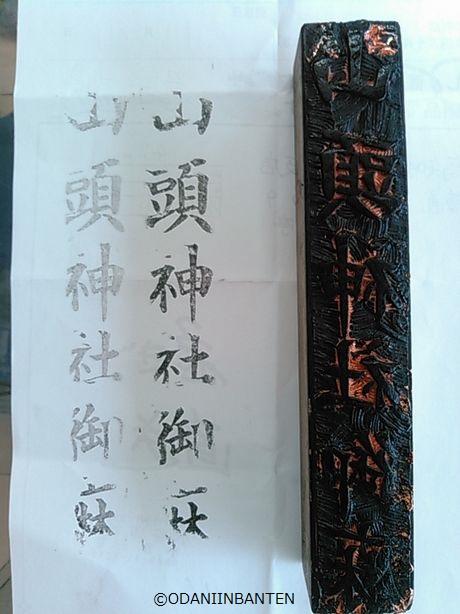 山頭神社御麻
山頭神社御麻
©ODANIINBANTEN